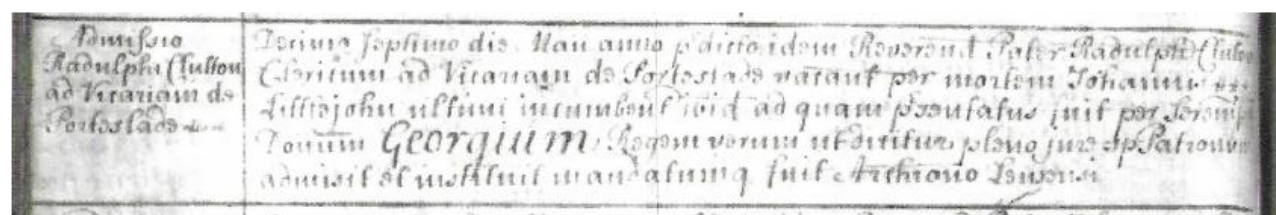 Admissio
Radulphi Clutton
ad Vicariam de
Porteslade
Decimo Septimo die Maii anno p̄dicto idem Reverend Pater Radulph Clutton
Clericum ad Vicariam de Porteslade vacant per mortem Johannis
Littlejohn ultimi incumbent ibid ad quam p̄sentatus fuit per Serenss
Domum Georgium Regem verum ut dicitur pleno jure Patronum
admisit et instituit mandatumq fuit Archiono Lewensi